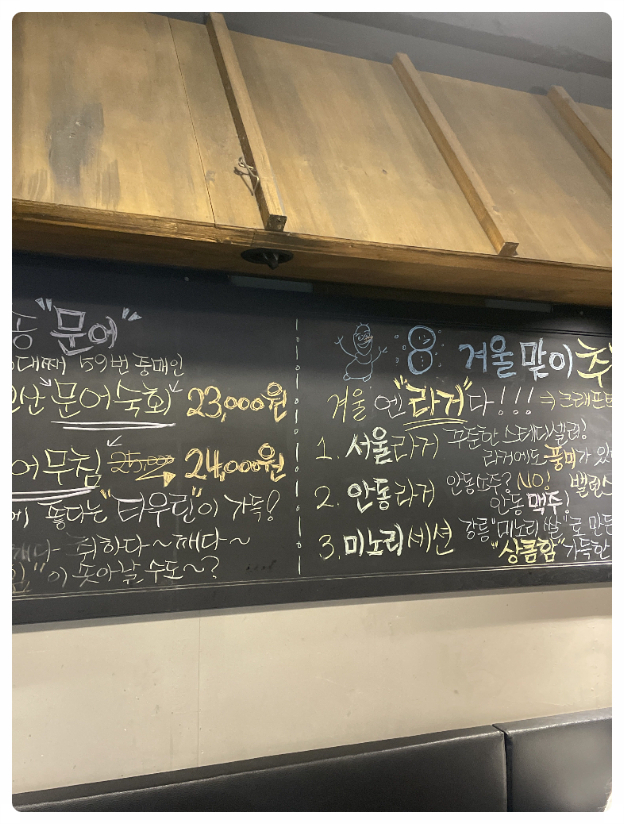 "문어"
대째 59번 중매인
산 "문어숙회" 23,000원
어무침 25,000 24,000원
에 좋다는 "타우린"이 가득!
취하다~깨다~
"이 돋아날 수도~?
8 겨울 맞이 추
겨울엔 "라거"다!!! ⇒ 크래프트
1. 서울라거 꾸준한 스테디셀러!
라거에도 풍미가 있
2. 안동라거 안동소주? NO! 밸런스
안동 맥주!
3. 미노리세션 강릉 "미노리 쌀"로 만든
"상큼함" 가득한